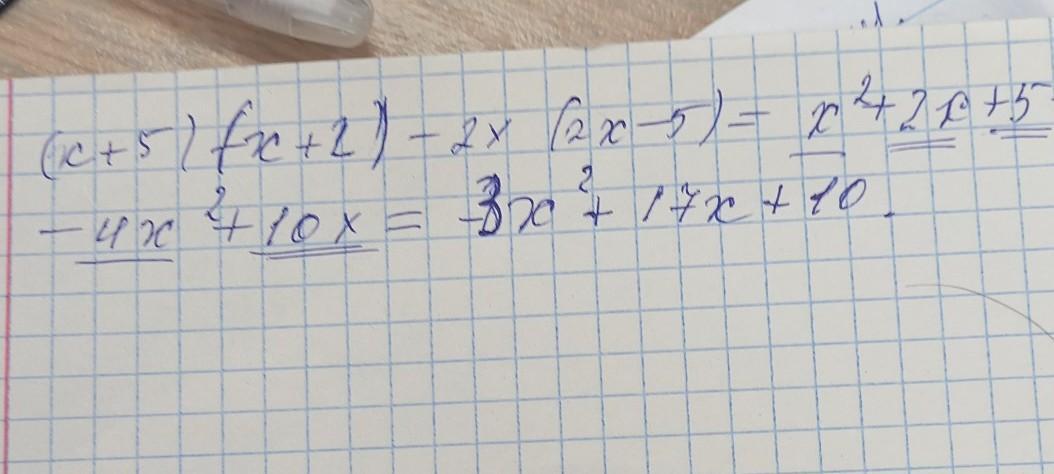 (x+5)(x+2)-2x(2x-5)= x²+2x+5
-4x²+10x= -3x²+17x+10.